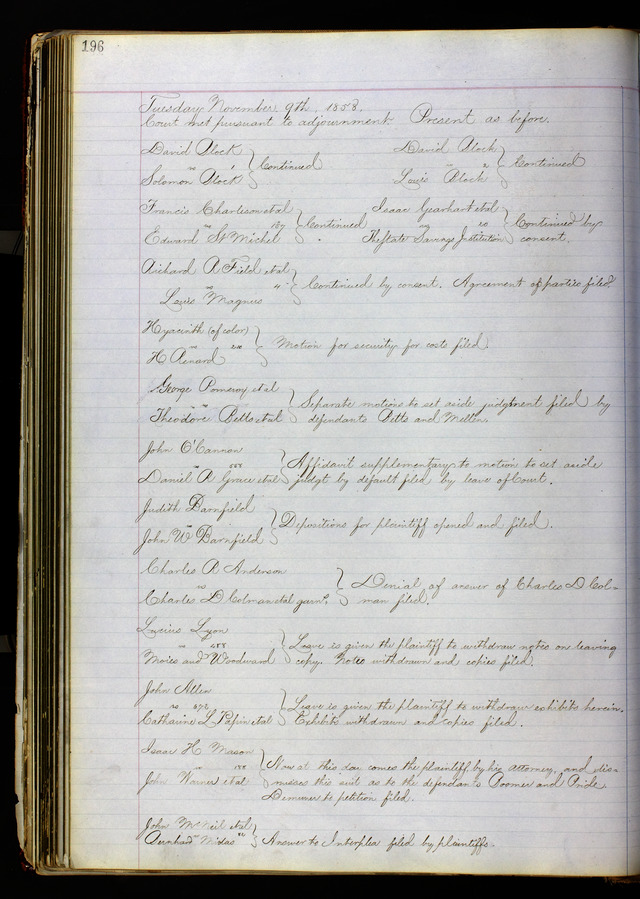 196
Tuesday November 9th, 1858.
Court met pursuant to adjournment Present as before.
David Block
vs
Solomon Block
Continued
David Block
vs
Louis Block
Continued
Francis Charleson et al
vs 187
Edward St Michel
Continued
Isaac Gearhart et al
vs 20
The State Savings Institution
Continued by
consent.
Richard R Field et al
vs
Louis Magnus
Continued by consent. Agreement of parties filed.
Hyacinth (of color)
vs
H Renard
Motion for security for costs filed
George Pomeroy et al
vs
Theodore Betts et al
Separate motions to set aside judgment filed by
defendants Betts and Mellen.
John O'Cannon
vs
Daniel R Grace et al
Affidavit supplementary to motion to set aside
judgt by default filed by leave of Court.
Judith Barnfield
vs
John W Barnfield
Depositions for plaintiff opened and filed.
Charles R Anderson
vs
Charles D Colman et al garn.
Denial of answer of Charles D Col=
man filed.
Lucius Lyon
vs
and Woodward
Leave is given the plaintiff to withdraw notes on leaving
copy. Notes withdrawn and copies filed.
John Allen
vs 572
Catharine L Papin et al
Leave is given the plaintiff to withdraw exhibits herein.
Exhibits withdrawn and copies filed.
Isaac H Mason
vs
John Warner et al
Now at this day comes the plaintiff by his attorney, and dis=
misses this suit as to the defendants and Pride.
Demurrer to petition filed.
John McNeil et al
vs
Bernhard Midas
Answer to Interplea filed by plaintiffs.